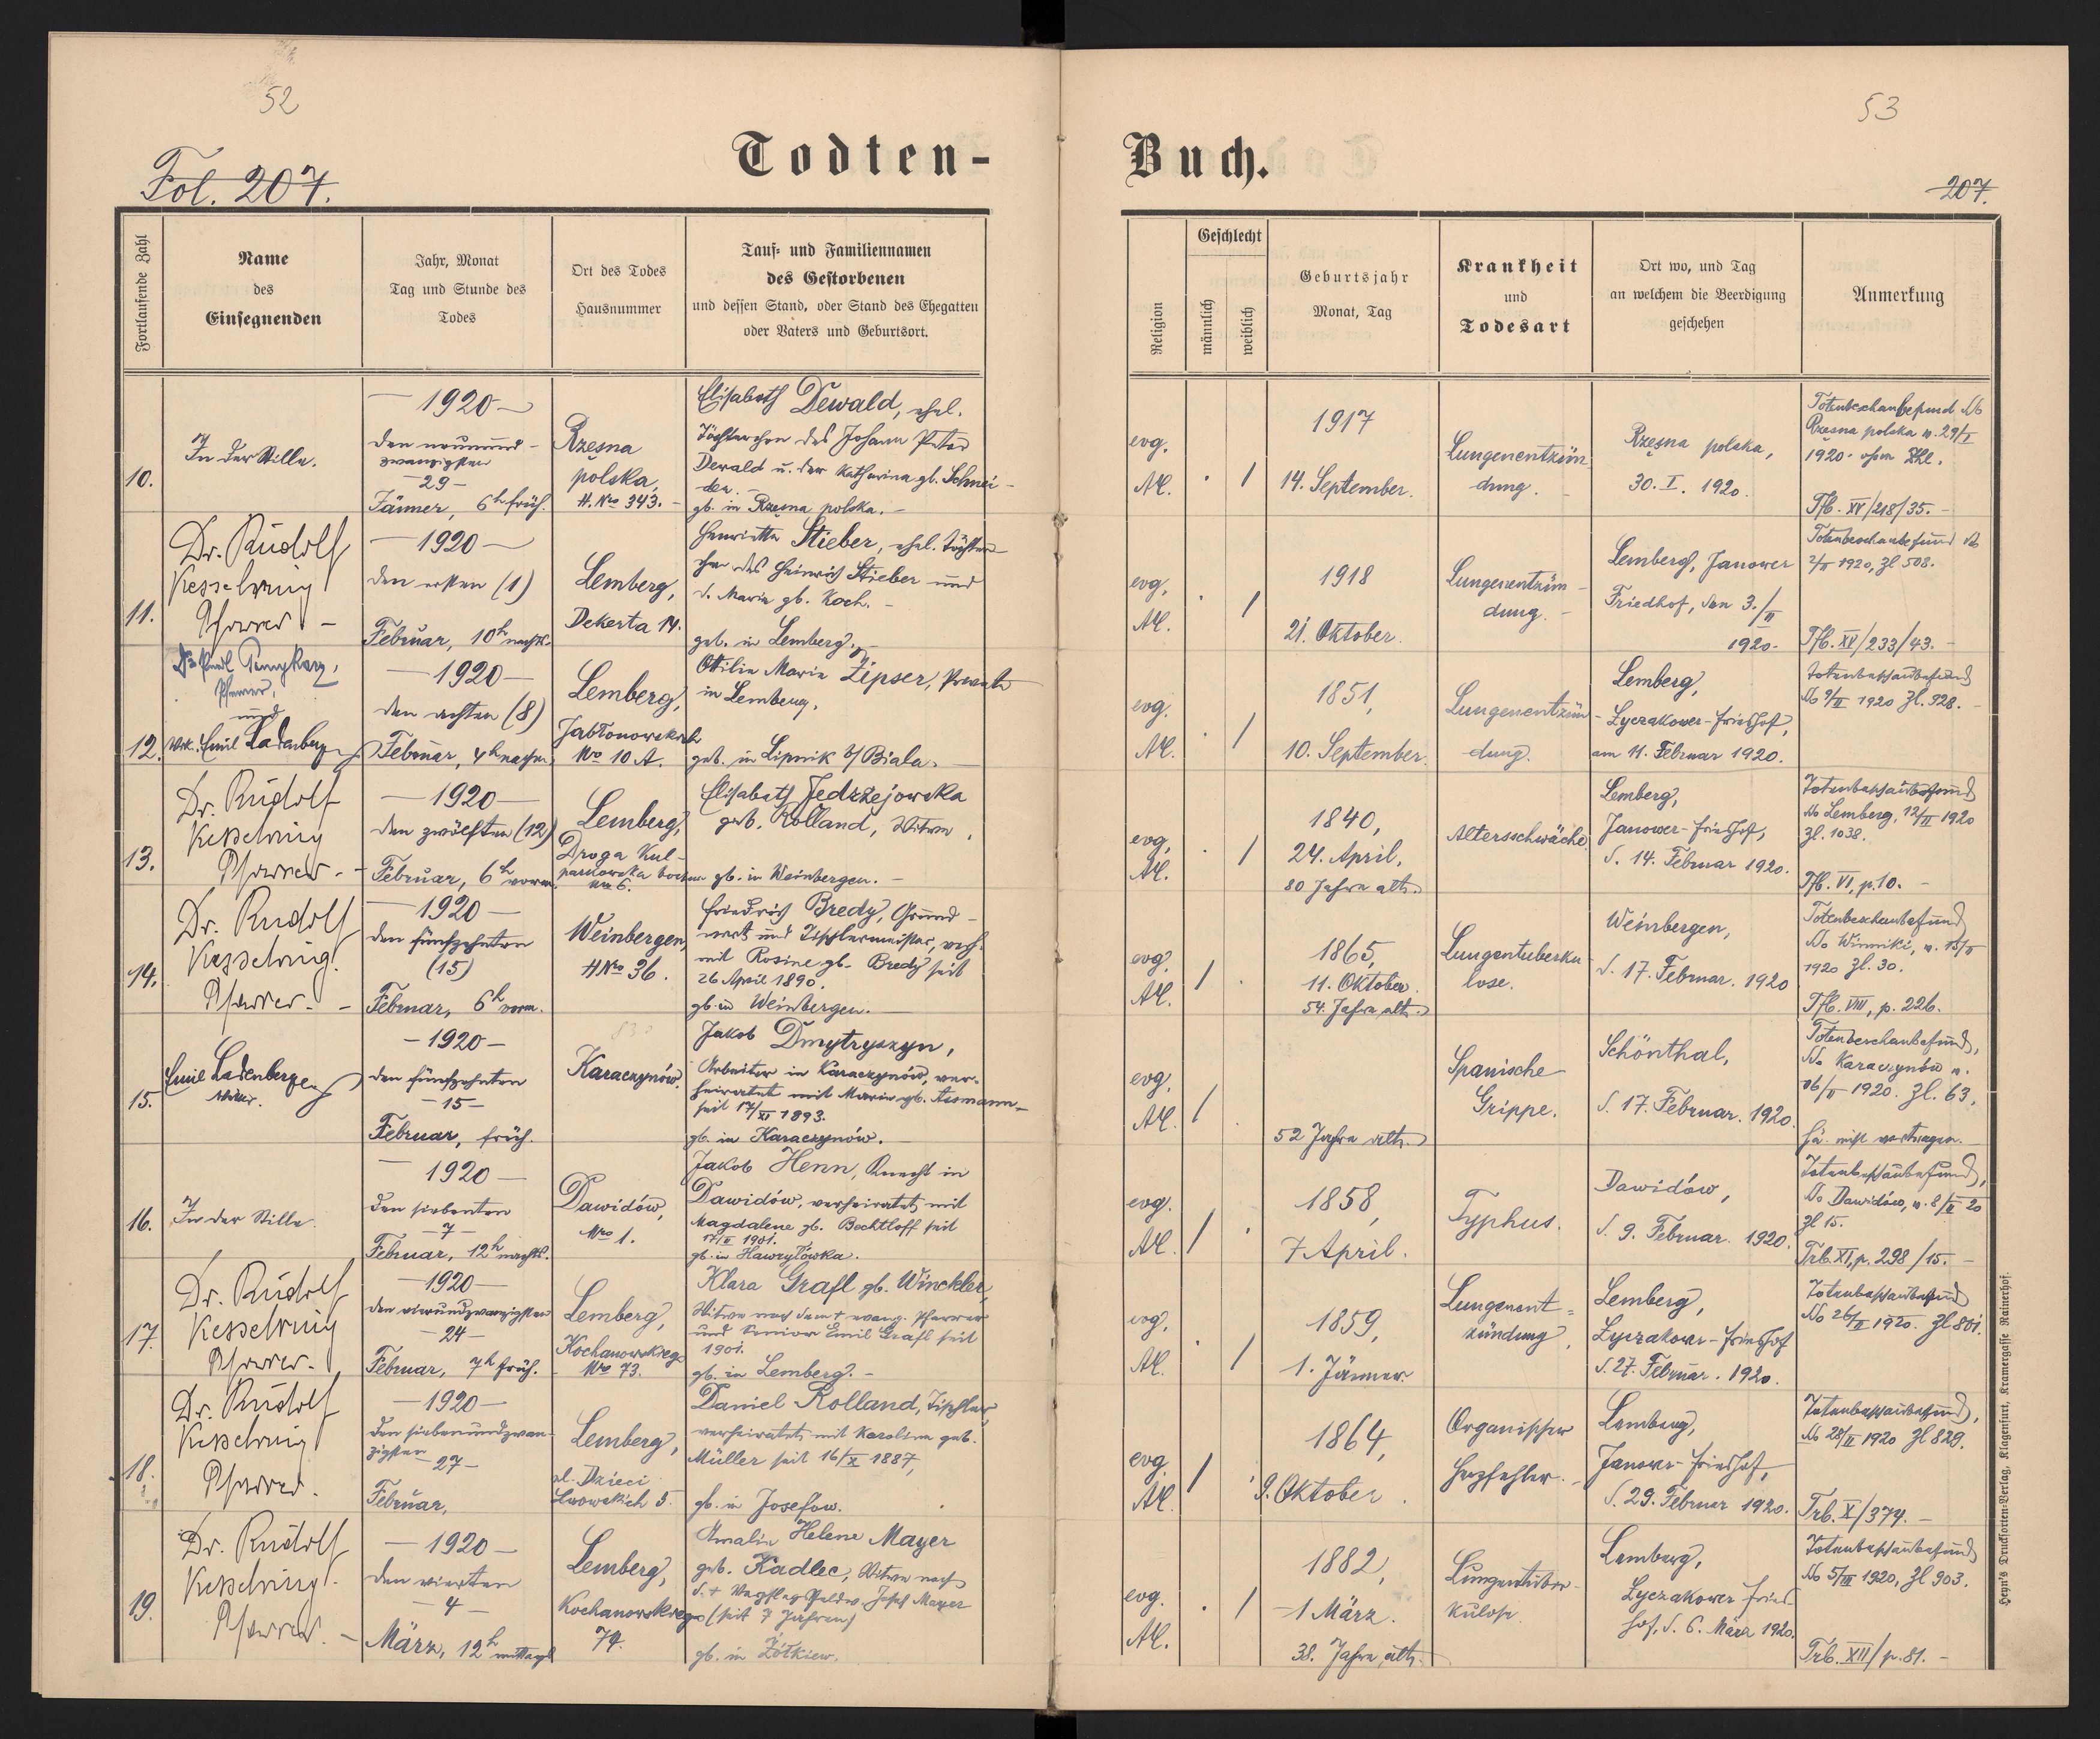 52
53
Todten-
Buch.
Fol. 207.
207.
Fortlaufende Zahl
Name
des
Einsegnenden
Jahr, Monat
Tag und Stunde des
Todes
Ort des Todes
Hausnummer
Tauf- und Familiennamen
des Gestorbenen
und dessen Stand, oder Stand des Ehegatten
oder Vaters und Geburtsort.
Religion
Geschlecht
männlich
weiblich
Geburtsjahr
Monat, Tag
Krankheit
und
Todesart
Ort wo, und Tag
an welchem die Beerdigung
geschehen
Anmerkung
10.
In der Stille.
— 1920 —
den neunund-
zwanzigsten
— 29 —
Jänner, 6h früh.
Rzęsna
polska,
H. Nro 343. —
Elisabeth Dewald, ehel.
Töchterchen des Johann Peter
Dewald u. der Katharina gb. Schnei-
der. —
gb. in Rzęsna polska. —
evg.
AC.
. /
1917
14. September.
Lungenentzün
dung. —
Rzęsna polska,
30. I. 1920.
Totenbeschaubefund
Rzęsna polska v. 29/I
1920. ohne Zhl.
Tfb. XV/218/35. —
11.
Dr. Rudolf
Kesselring
Pfarrer —
— 1920 —
den ersten (1)
Februar, 10h nachts.
Lemberg,
Dekerta 14.
Henriette Stieber, ehel. Töchter-
chen des Heinrich Stieber und
d. Marie gb. Koch. —
geb. in Lemberg. —
evg.
AC.
. /
1918
21. Oktober.
Lungenentzün-
dung. —
Lemberg, Janower
Friedhof, den 3./II
1920.
Totenbeschaubefund
2/II 1920, Zl 508.
Tfb. XV/233/43. —
12.
Pfarrer,
und
Vik. Emil Ladenberger
— 1920 —
den achten (8)
Februar, 4h nachm.
Lemberg,
Jabłonowskich
Nro 10 A.
Ottilie Marie Zipser, Private
in Lemberg.
geb. in Lipnik b/Biala. —
evg.
AC.
. /
1851,
10. September.
Lungenentzün-
dung.
Lemberg,
Lyczakower-Friedhof,
am 11. Februar 1920.
Totenbeschaubefund
9/II 1920 Zl. 928. —
13.
Dr. Rudolf
Kesselring
Pfarrer. —
— 1920 —
den zwölften (12)
Februar, 6h vorm.
Lemberg,
Droga Kul-
parkowska
Nro 6.
Elisabeth Jedrzejowska
geb. Rolland, Witwe.
gb. in Weinbergen. —
evg.
AC.
. /
1840,
24. April.
80 Jahre alt.
Altersschwäche.
Lemberg,
Janower-Friedhof,
d. 14. Februar 1920.
Totenbeschaubefund
Lemberg, 12/II 1920
Zl. 1038.
Tfb. VI, p. 10. —
14.
Dr. Rudolf
Kesselring.
Pfarrer. —
— 1920 —
den fünfzehnten
(15)
Februar, 6h vorm.
Weinbergen,
HNro 36.
Friedrich Bredy, Grund-
wirt und Tischlermeister, verh.
mit Rosine gb. Bredy seit
26 April 1890.
gb. in Weinbergen. —
evg.
AC.
/ .
1865,
11. Oktober.
54. Jahre alt.
Lungentuberku
lose.
Weinbergen,
d. 17. Februar. 1920
Totenbeschaubefund
Winniki, v. 15/II
1920 Zl. 30.
Tfb. VIII, p. 226.
15.
Emil Ladenberger
Vikar.
— 1920 —
den fünfzehnten
— 15 —
Februar, früh.
Karaczynów.
Jakob Dmytryszyn,
Arbeiter in Karaczynów, ver-
heiratet mit Marie gb. Assmann
seit 17/XI 1893.
gb. in Karaczynów. —
evg.
AC.
/ .
52 Jahre alt.
Spanische
Grippe.
Schönthal,
d. 17. Februar. 1920.
Totenbeschaubefund,
Karaczynów v.
16/II 1920. Zl. 63.
16.
In der Stille.
— 1920 —
den siebenten
— 7 —
Februar, 12h nachts.
Dawidów,
Nro 1.
Jakob Henn, Knecht in
Dawidów, verheiratet mit
Magdalene gb. Bechtloff seit
17/II 1901.
gb. in Hawryłówka.
evg.
AC.
/ .
1858,
7 April.
Typhus.
Dawidów,
d. 9. Februar. 1920.
Totenbeschaubefund,
Dawidów, v. 8/II 20
Zl 15.
Trb. XI, p. 298/15. —
17.
Dr. Rudolf
Kesselring
Pfarrer.
— 1920 —
den vierundzwanzigsten
— 24 —
Februar, 7h früh.
Lemberg,
Kochanowskiego
Nro 73.
Klara Grafl gb. Winckler,
Witwe nach dem † evang. Pfarrer
und Senior Emil Grafl seit
1901.
gb. in Lemberg. —
evg.
AC.
. /
1859,
1. Jänner.
Lungenent-
zündung.
Lemberg,
Lyczakower-Friedhof
d. 27. Februar. 1920.
Totenbeschaubefund
26/II 1920. Zl 801.
18.
Dr. Rudolf
Kesselring
Pfarrer.
— 1920 —
den siebenundzwan-
zigsten
— 27 —
Februar,
Lemberg,
ul. Dzieci
Lwowskich 5.
Daniel Rolland, Tischler,
verheiratet mit Karoline geb.
Müller seit 16/X 1887,
gb. in Josefow.
evg.
AC.
/ .
1864,
9. Oktober.
Organischer
Herzfehler. —
Lemberg,
Janower-Friedhof,
d. 29. Februar 1920.
Totenbeschaubefund,
28/II 1920 Zl 829.
Trb. X/374. —
19.
Dr. Rudolf
Kesselring.
Pfarrer. —
— 1920 —
den vierten
— 4 —
März, 12h mittags
Lemberg,
Kochanowskiego
74.
Amalie Helene Mayer
geb. Kadlec, Witwe nach
Josef Mayer
(seit 7 Jahren)
gb. in Żółkiew.
evg.
AC.
. /
1882,
1 März.
38. Jahre alt.
Lungentuber-
kulose.
Lemberg,
Lyczakower Fried
hof, d. 6. März 1920.
Totenbeschaubefund
5/III 1920, Zl 903.
Trb. XII/p. 81. —
Heyn's Drucksorten-Verlag, Klagenfurt, Kramergasse Rainerhof.